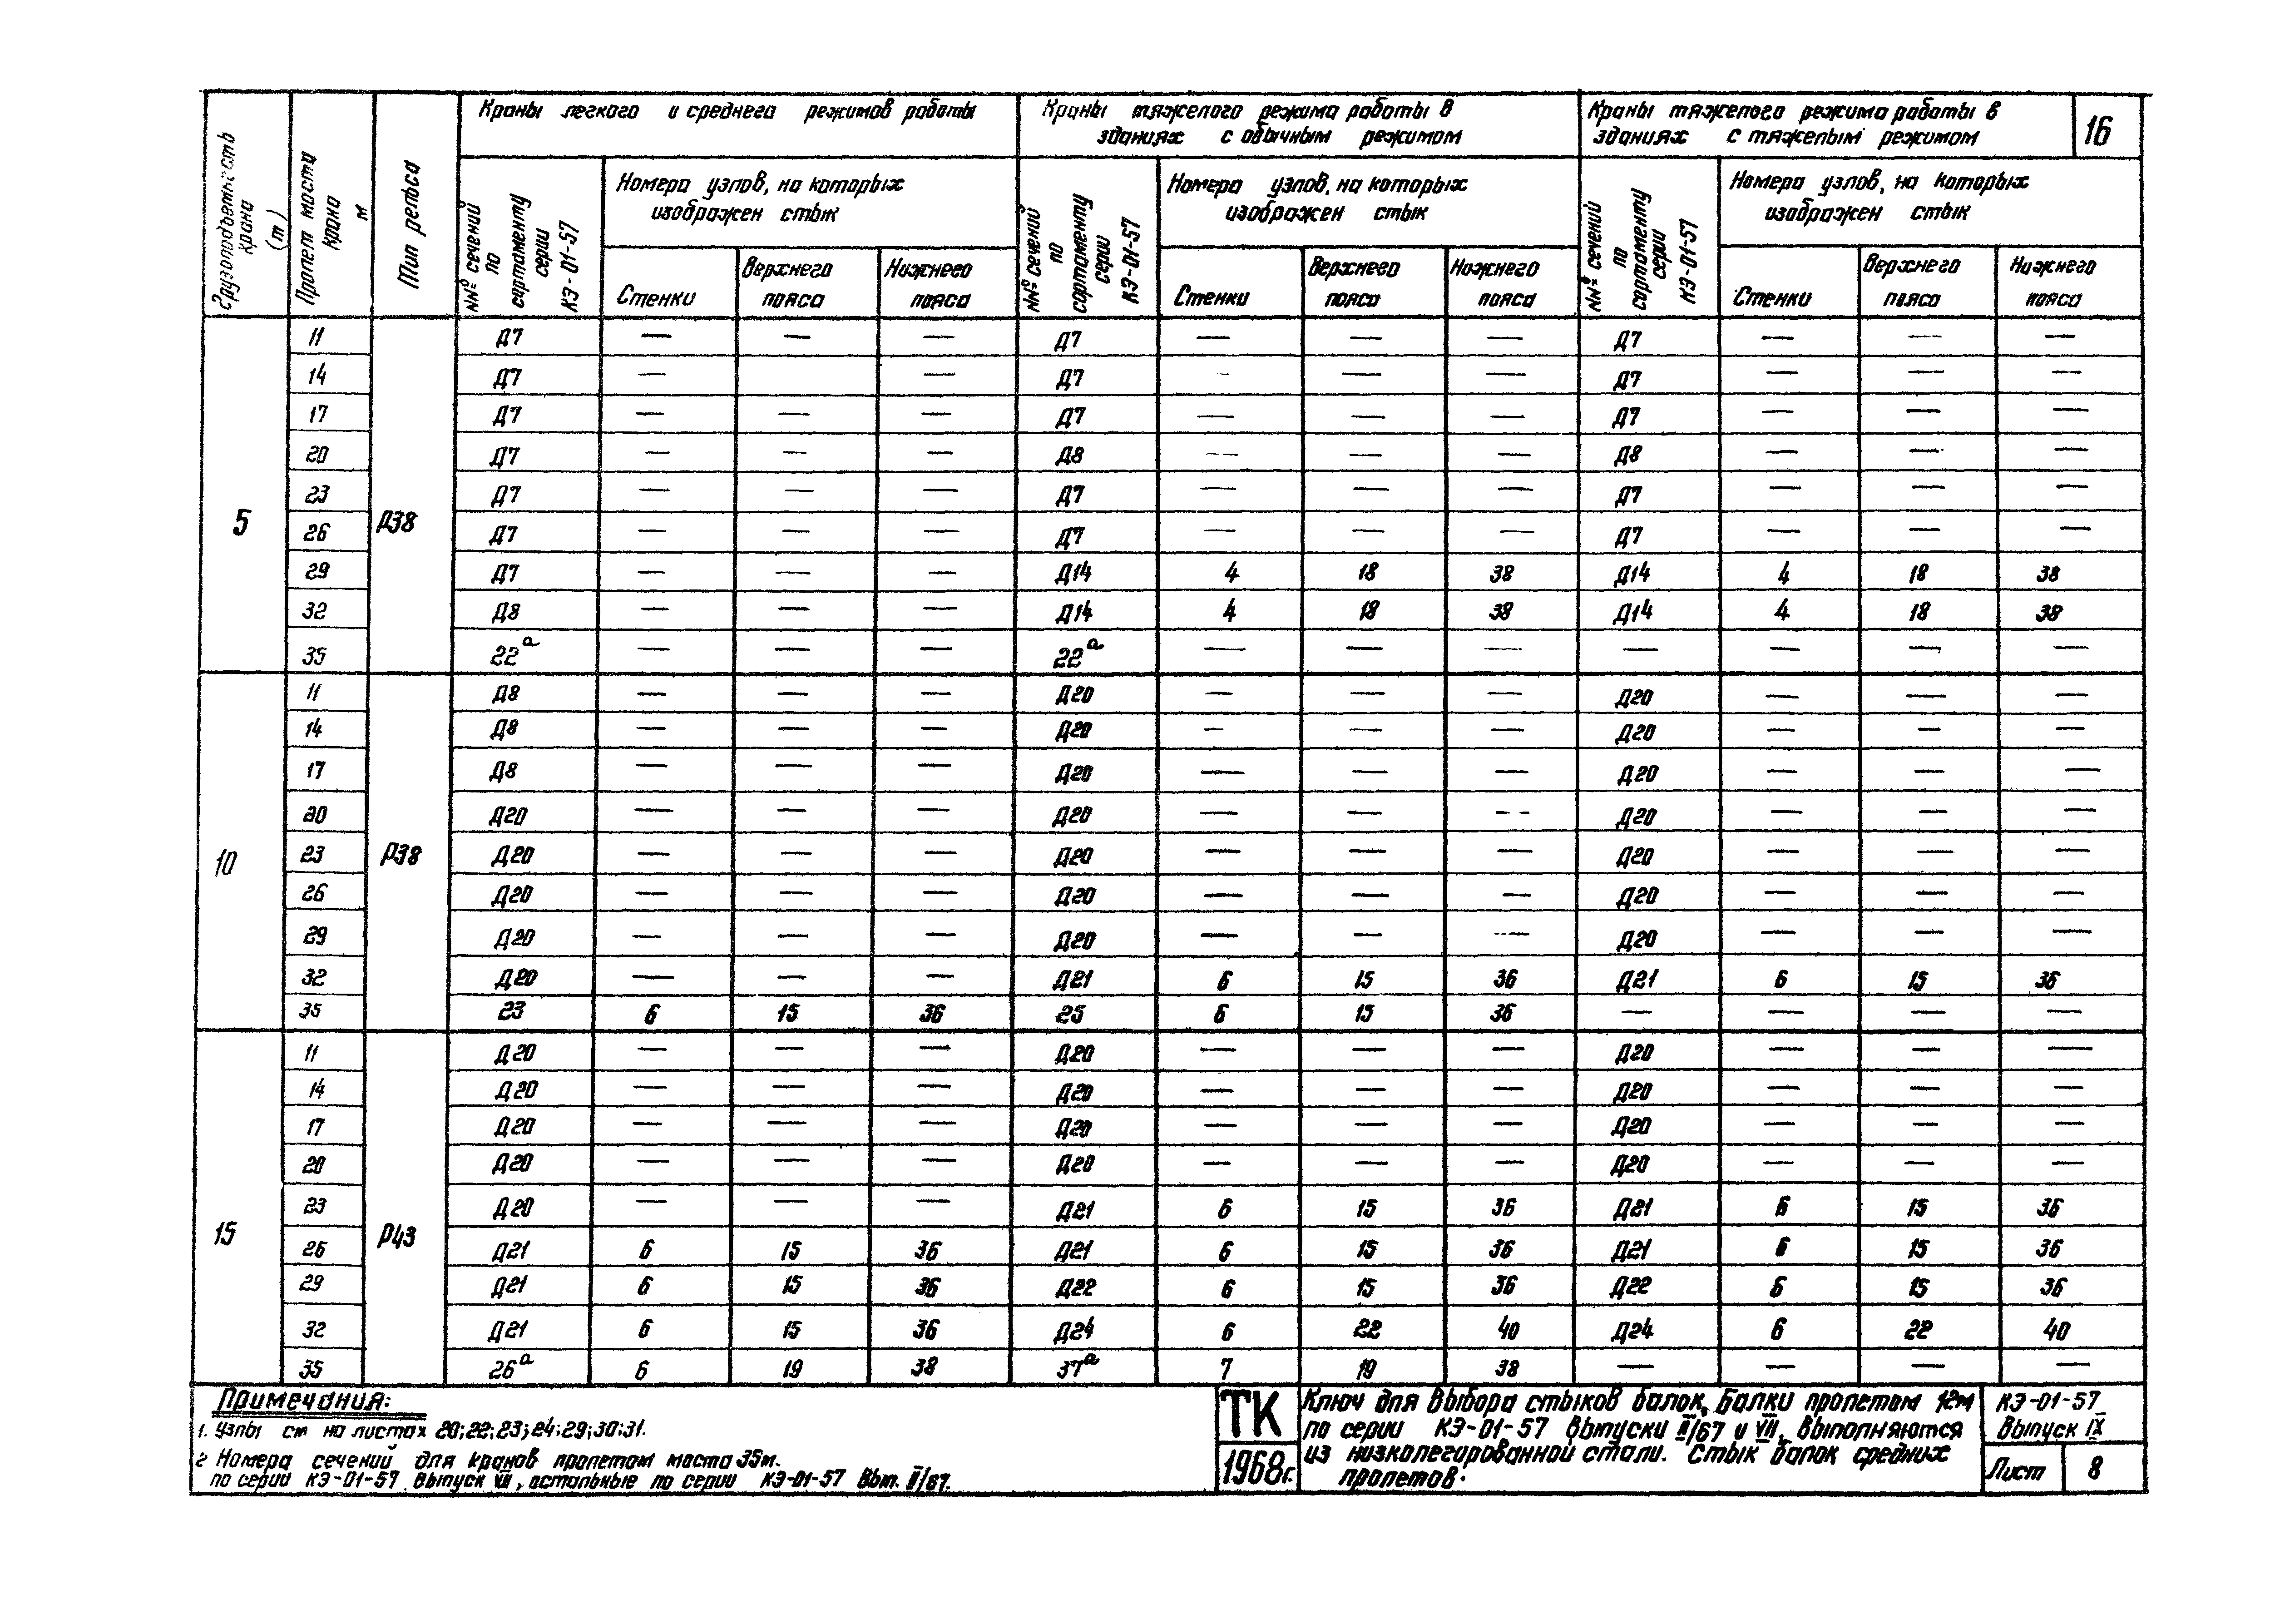 16
Краны легкого и среднего режимов работы
Краны тяжелого режима работы в
зданиях с обычным режимом
Краны тяжелого режима работы в
зданиях с тяжелым режимом
Грузоподъемность
крана
(т)
Пролет моста
крана
м
Тип рельса
№№ сечений
по
сортаменту
серии
КЭ-01-57
Номера узлов, на которых
изображен стык
Стенки
Верхнего
пояса
Нижнего
пояса
№№ сечений
по
сортаменту
серии
КЭ-01-57
Номера узлов, на которых
изображен стык
Стенки
Верхнего
пояса
Нижнего
пояса
№№ сечений
по
сортаменту
серии
КЭ-01-57
Номера узлов, на которых
изображен стык
Стенки
Верхнего
пояса
Нижнего
пояса
5 Р38
11 Д7 — — — Д7 — — — Д7 — — —
14 Д7 — — Д7 — — — Д7 — — —
17 Д7 — — — Д7 — — — Д7 — — —
20 Д7 — — — Д8 — — — Д8 — — —
23 Д7 — — — Д7 — — — Д7 — — —
26 Д7 — — — Д7 — — — Д7 — — —
29 Д7 — — — Д14 4 18 38 Д14 4 18 38
32 Д8 — — — Д14 4 18 38 Д14 4 18 38
35 22а — — — 22а — — — — — — —
10 Р38
11 Д8 — — — Д20 — — — Д20 — — —
14 Д8 — — — Д20 — — — Д20 — — —
17 Д8 — — — Д20 — — — Д20 — — —
20 Д20 — — — Д20 — — — Д20 — — —
23 Д20 — — — Д20 — — — Д20 — — —
26 Д20 — — — Д20 — — — Д20 — — —
29 Д20 — — — Д20 — — — Д20 — — —
32 Д20 — — — Д21 6 15 36 Д21 6 15 36
35 23 6 15 36 25 6 15 36 — — — —
15 Р43
11 Д20 — — — Д20 — — — Д20 — — —
14 Д20 — — — Д20 — — — Д20 — — —
17 Д20 — — — Д20 — — — Д20 — — —
20 Д20 — — — Д20 — — — Д20 — — —
23 Д20 — — — Д21 6 15 36 Д21 6 15 36
26 Д21 6 15 36 Д21 6 15 36 Д21 6 15 36
29 Д21 6 15 36 Д22 6 15 36 Д22 6 15 36
32 Д21 6 15 36 Д24 6 22 40 Д24 6 22 40
35 26а 6 19 38 37а 7 19 38 — — — —
Примечания:
1. Узлы см на листах 20;22;23;24;29;30;31.
2 Номера сечений для кранов пролетом моста 35м.
по серии КЭ-01-57 выпуск VIII, остальные по серии КЭ-01-57 Вып. II/67.
ТК
1968г.
Ключ для выбора стыков балок. Балки пролетом 12м
по серии КЭ-01-57 выпуски II/67 и VIII, выполняются
из низколегированной стали. Стык балок средних
пролетов.
КЭ-01-57
Выпуск IX
Лист 8